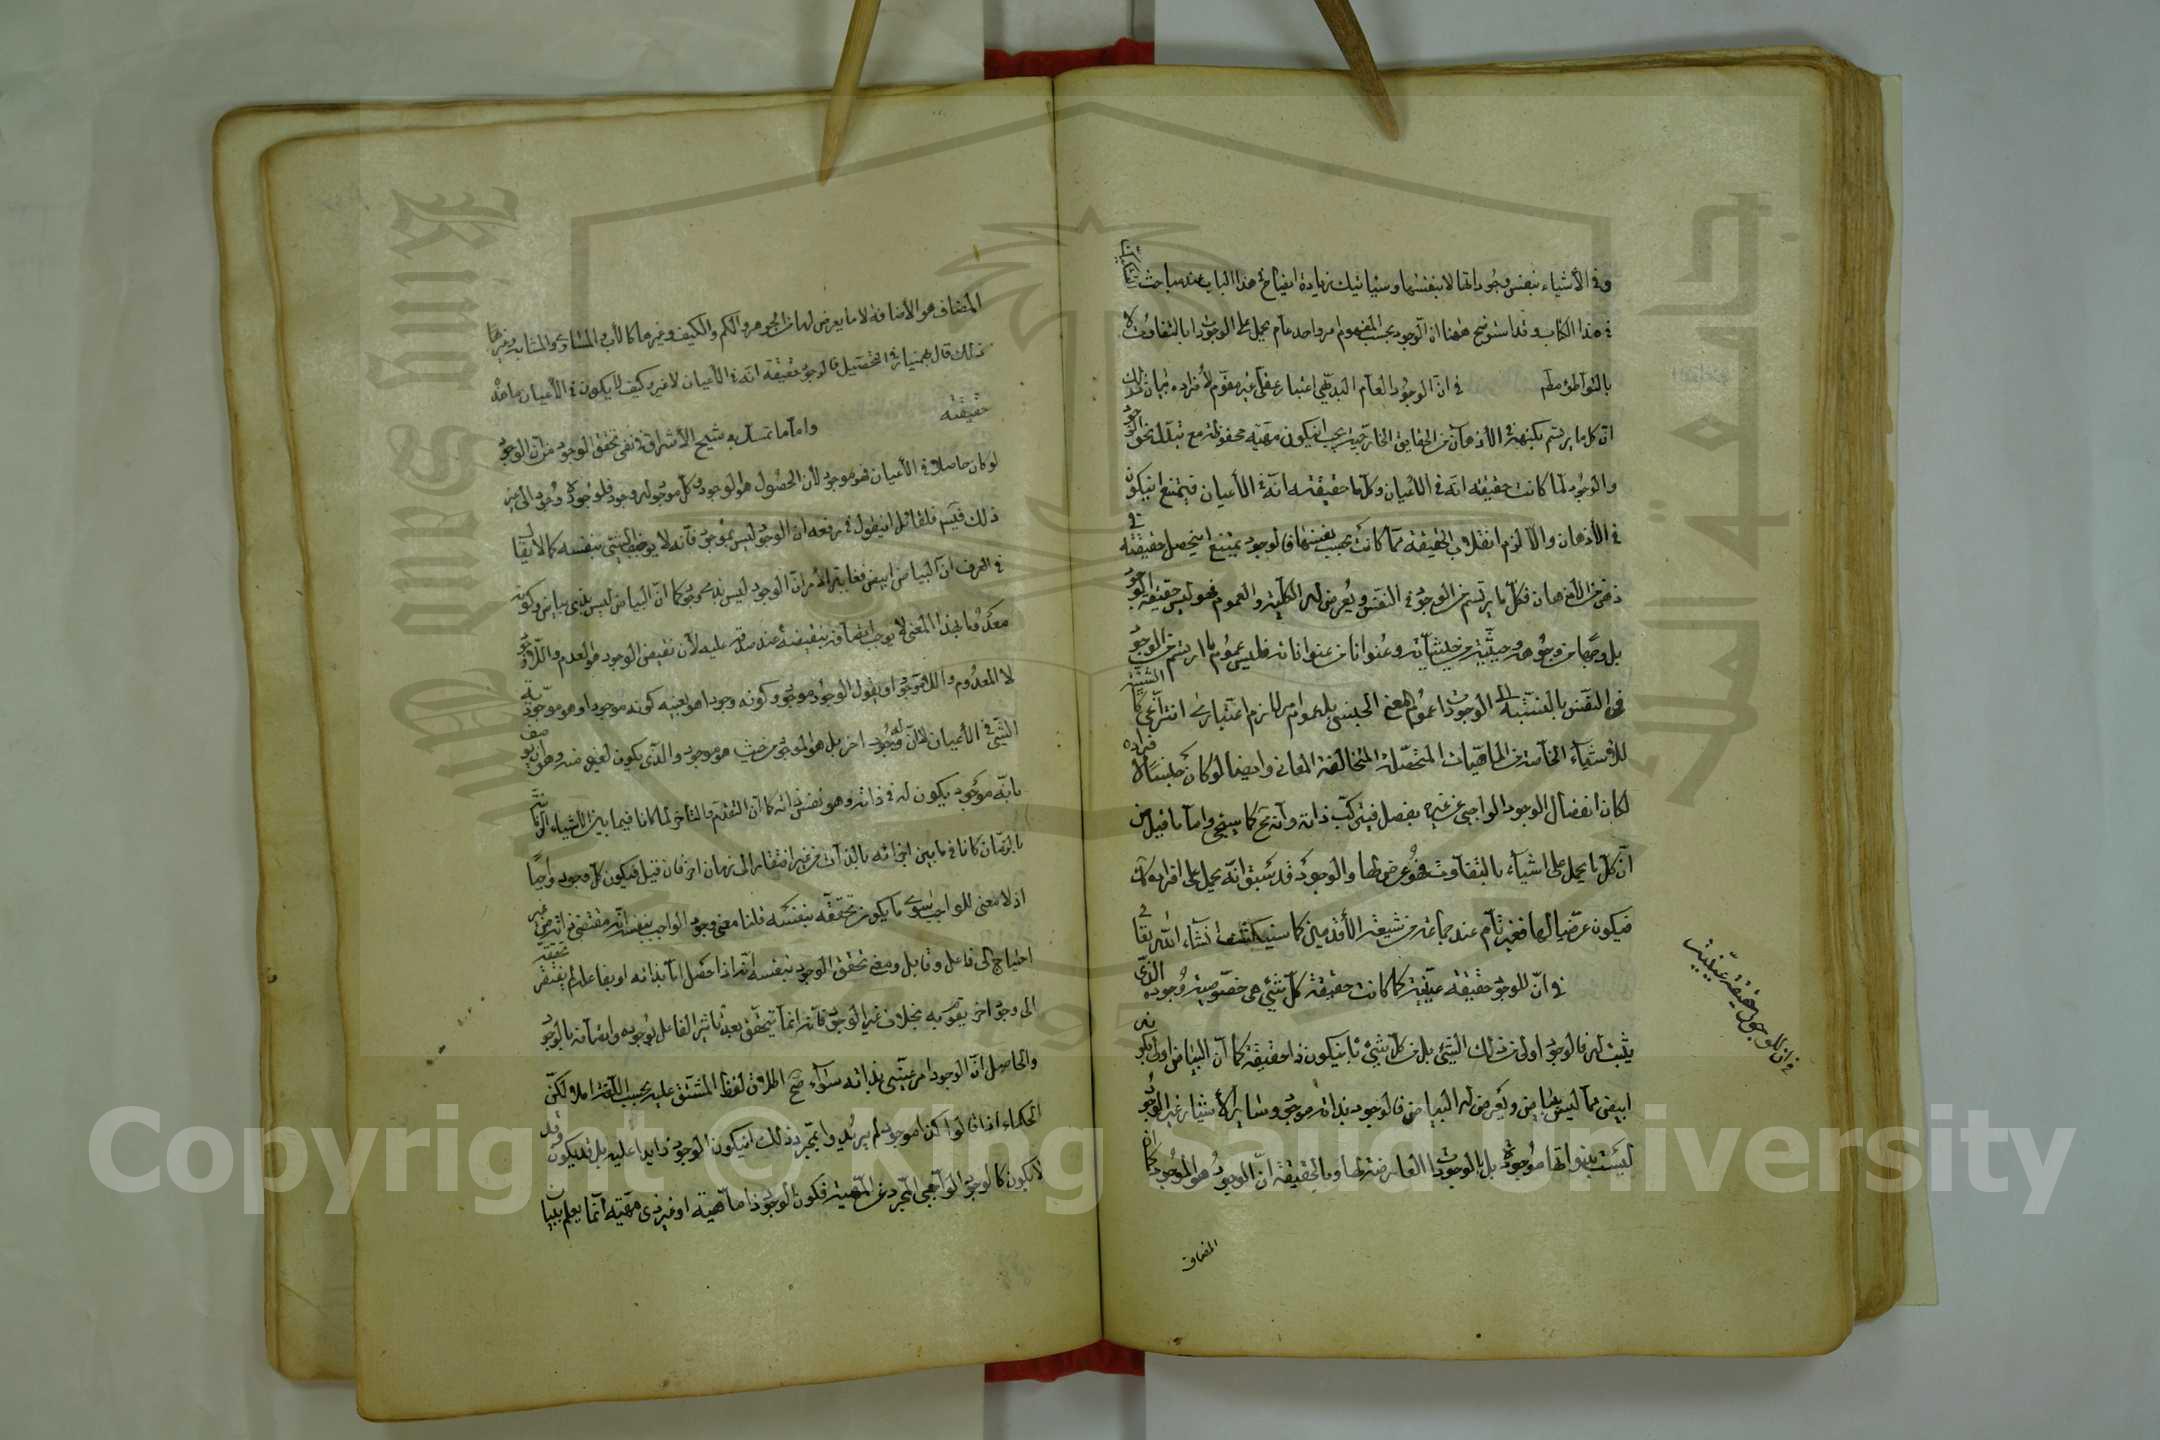 وفي الأشياء بنفس وجوداتها لا بنفسها وسيأتيك زيادة ايضاح في هذا الباب عند مباحث التشكيك
في هذا الكتاب وقد استوضح ههنا ان الوجود بحسب المفهوم امر واحد عام يحمل على الوجودات بالتفاوت لا
بالتواطؤ مطلقا في ان الوجود العام البديهي اعتبار عقلي غير مقوم لأفراده بيان ذلك
ان كل ما يرتسم بكنهه في الأذهان من الحقايق الخارجية يجب ان يكون مهيته محفوظة مع تبدل نحو الوجود
والوجود لما كانت حقيقته انه في الأعيان وكل ما حقيقته انه في الأعيان فيمتنع ان يكون
في الأذهان والا لزم انقلاب الحقيقة عما كانت بحسب نفسها فالوجود يمتنع ان يحصل حقيقته في
ذهن من الأذهان فكل ما يرتسم من الوجود في النفس ويعرض له الكلية والعموم فهو ليس حقيقة الوجود
بل وجها من وجوهه وحيثية من حيثياته وعنوانا من عنواناته فليس عموم ما ارتسم من الوجود
في النفس بالنسبة الى الوجودات عموم المعنى الجنسي بل عموم امر لازم اعتباري انتزاعي كالشيئية
للأشياء الخاصة من الماهيات المتحصلة المتخالفة المعاني وايضا لو كان جنسا لأفراده
لكان انفصال الوجود الواجبي عن غيره بفصل فيتركب ذاته وانه مح كما سيجئ واما ما قيل من
ان كل ما يحمل على اشياء بالتفاوت فهو عرضي لها والوجود قد سبق انه يحمل على افراده كذلك
فيكون عرضيا لها فغير تام عند جماعة من شيعة الأقدمين كما سينكشف انشاء الله تعالى
في ان للوجود حقيقة عينية كما كانت حقيقة كل شئ هي خصوصية وجوده الذي
يثبت له فالوجود اولى من ذلك الشئ بل من كل شئ بان يكون ذا حقيقة كما ان البياض اولى بكونه
ابيض مما ليس ببياض ويعرض له البياض فالوجود بذاته موجود وساير الأشياء غير الوجود
ليست بذواتها موجودة بل بالوجودات العارضة لها وبالحقيقة ان الوجود هو الموجود كما ان
المضاف
في ان للوجود حقيقة عينية
المضاف هو الأضافة لا ما يعرض لها من الجوهر والكم والكيف وغيرها كالأب والمساوي والمشابه وغيرها
ذلك قال بهمنيار في التحصيل فالوجود حقيقته انه في الأعيان لا غير وكيف لا يكون في الأعيان ما هذه
حقيقته واما ما تمسك به شيخ الأشراق في نفي تحقق الوجود من ان الوجود
لو كان حاصلا في الأعيان فهو موجود لأن الحصول هو الوجود وكل موجود له وجود فلوجوده وجود الى غير
ذلك فيتم فلقائل ان يقول في دفعه ان الوجود ليس بموجود فانه لا يوصف الشئ بنفسه كما لا يقال
في العرف ان البياض ابيض فغاية الأمر ان الوجود ليس بذي وجود كما ان البياض ليس بذي بياض وكونه
معدوما بهذا المعنى لا يوجب اتصافه بنقيضه عند صدقه عليه لأن نقيض الوجود هو العدم واللاوجود
لا المعدوم واللاموجود او يقول الوجود موجود وكونه وجودا هو بعينه كونه موجودا وهو موجودية
الشئ في الأعيان لا ان له وجود اخر بل هو الموجود من حيث هو موجود والذي يكون لغيره منه وهو ان يوصف
بانه موجود يكون له في ذاته وهو نفس ذاته كما ان التقدم والتأخر لما كانا فيما بين الأشياء الزمانية
بالزمان كانا فيما بين اجزائه بالذات من غير افتقار الى زمان اخر فان قيل فيكون كل وجود واجبا
اذ لا معنى للواجب سوى ما يكون تحققه بنفسه قلنا معنى وجود الواجب بنفسه انه مقتضى ذاته من غير
احتياج الى فاعل وقابل ومعنى تحقق الوجود بنفسه انه اذا حصل اما بذاته او بفاعل لم يفتقر تحققه
الى وجود اخر يقوم به بخلاف غير الوجود فانه انما يتحقق بعد تأثير الفاعل بوجوده واتصافه بالوجود
والحاصل ان الوجود امر عيني بذاته سواء صح اطلاق لفظ المشتق عليه بحسب اللغة ام لا لكن
الحكماء اذا قالوا كذا موجود لم يريدوا بمجرد ذلك ان يكون الوجود زايدا عليه بل قد يكون وقد
لا يكون كالوجود الواجبي المجرد عن المهية فكون الوجود ذا ماهية او غير ذي مهية انما يعلم ببيان
Copyright © King Saud University
King Saud University